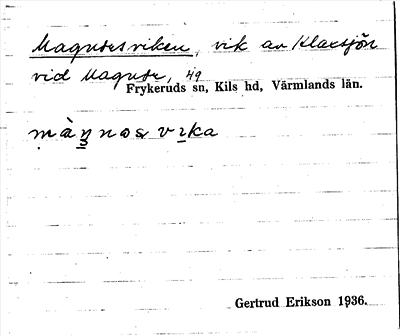 Magnusesviken, vik av Klarsjön
vid Magnuse, 49
Frykeruds sn, Kils hd, Värmlands län.
Gertrud Erikson 1936.